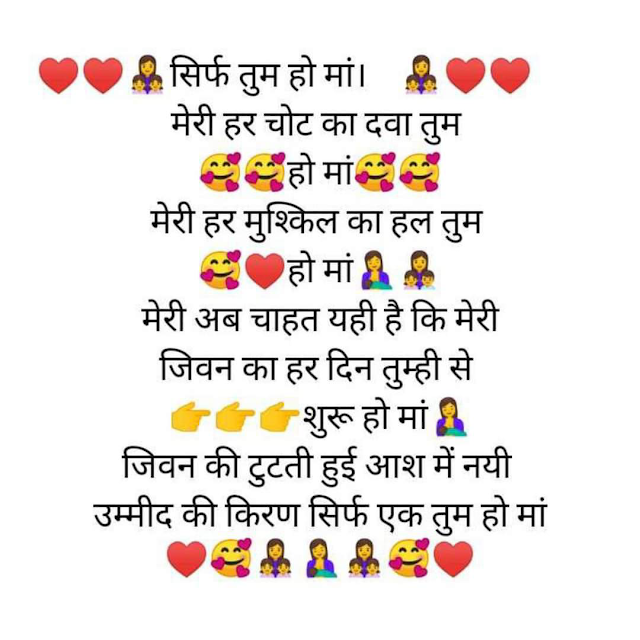 ♥️♥️👩‍👧‍👧सिर्फ तुम हो मां। 👩‍👧‍👧♥️♥️
मेरी हर चोट का दवा तुम
🥰🥰हो मां🥰🥰
मेरी हर मुश्किल का हल तुम
🥰♥️हो मां🤱👩‍👧‍👦
मेरी अब चाहत यही है कि मेरी
जिवन का हर दिन तुम्ही से
👉👉👉शुरू हो मां🤱
जिवन की टुटती हुई आश में नयी
उम्मीद की किरण सिर्फ एक तुम हो मां
♥️🥰👩‍👧‍👧🤱👩‍👧‍👧🥰♥️